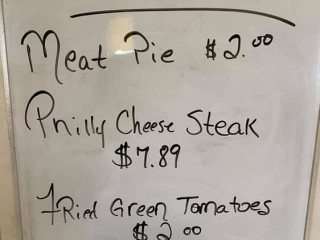 Meat Pie $2.00
Philly Cheese Steak
$7.89
Fried Green Tomatoes
$2.00